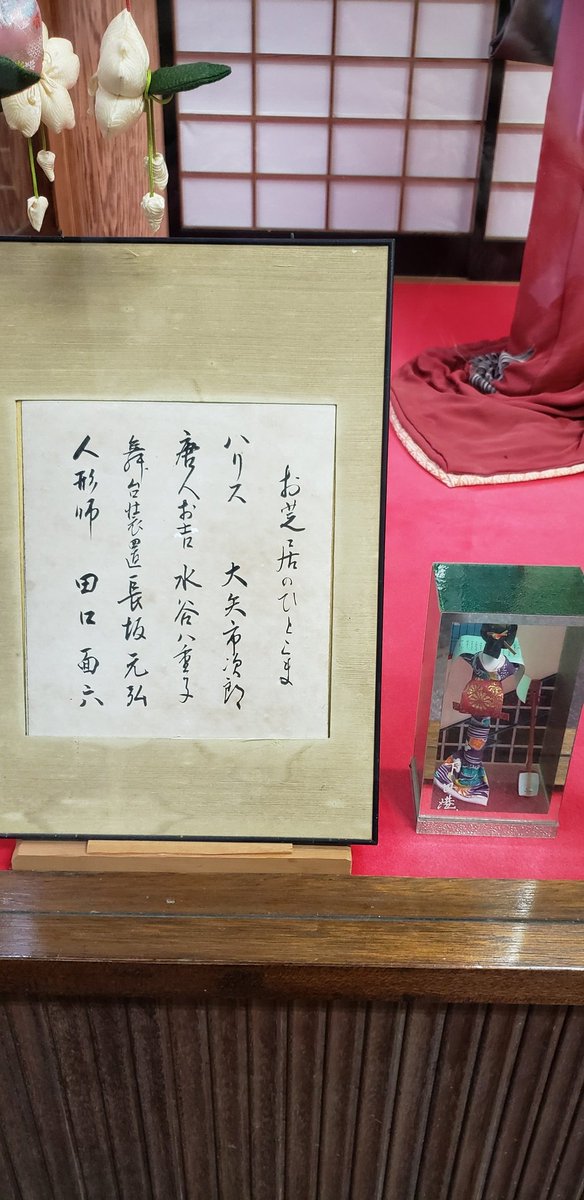 お芝居のひとこま
ハリス 大矢市次郎
唐人お吉 水谷八重子
舞台装置 長坂元弘
人形師 田口面六